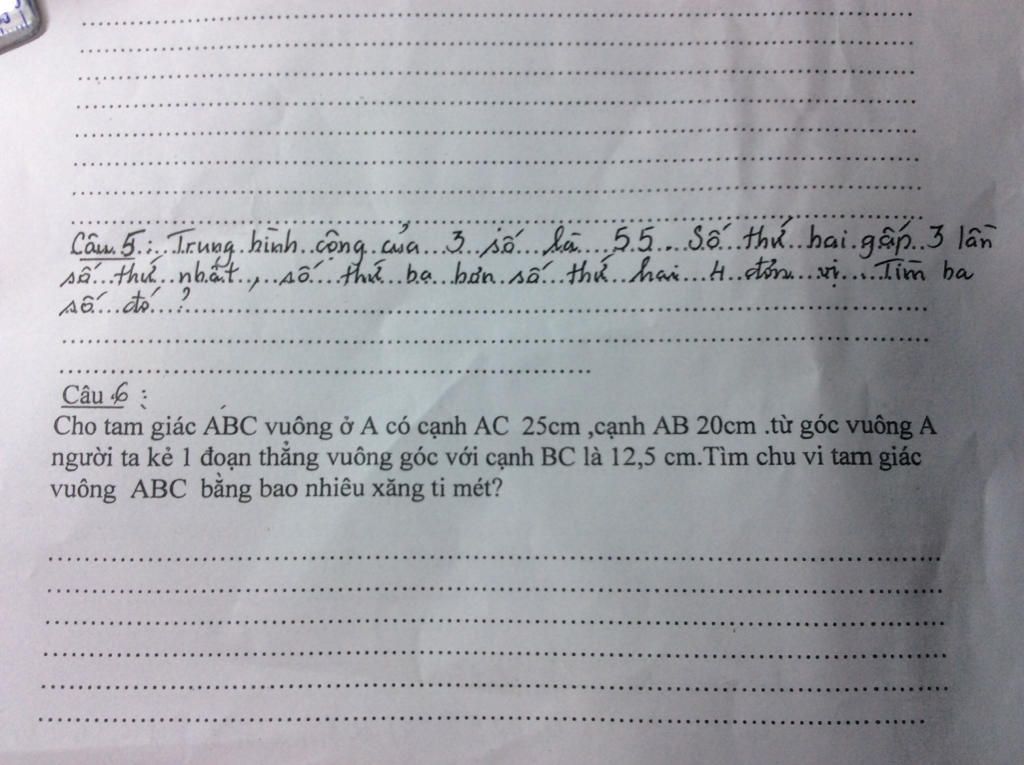 Câu 5 : Trung bình cộng của 3 số là 55. Số thứ hai gấp 3 lần
số thứ nhất, số thứ ba hơn số thứ hai 4 đơn vị. Tìm ba
số đó ?
Câu 6 :
Cho tam giác ABC vuông ở A có cạnh AC 25cm ,cạnh AB 20cm .từ góc vuông A
người ta kẻ 1 đoạn thẳng vuông góc với cạnh BC là 12,5 cm.Tìm chu vi tam giác
vuông ABC bằng bao nhiêu xăng ti mét?